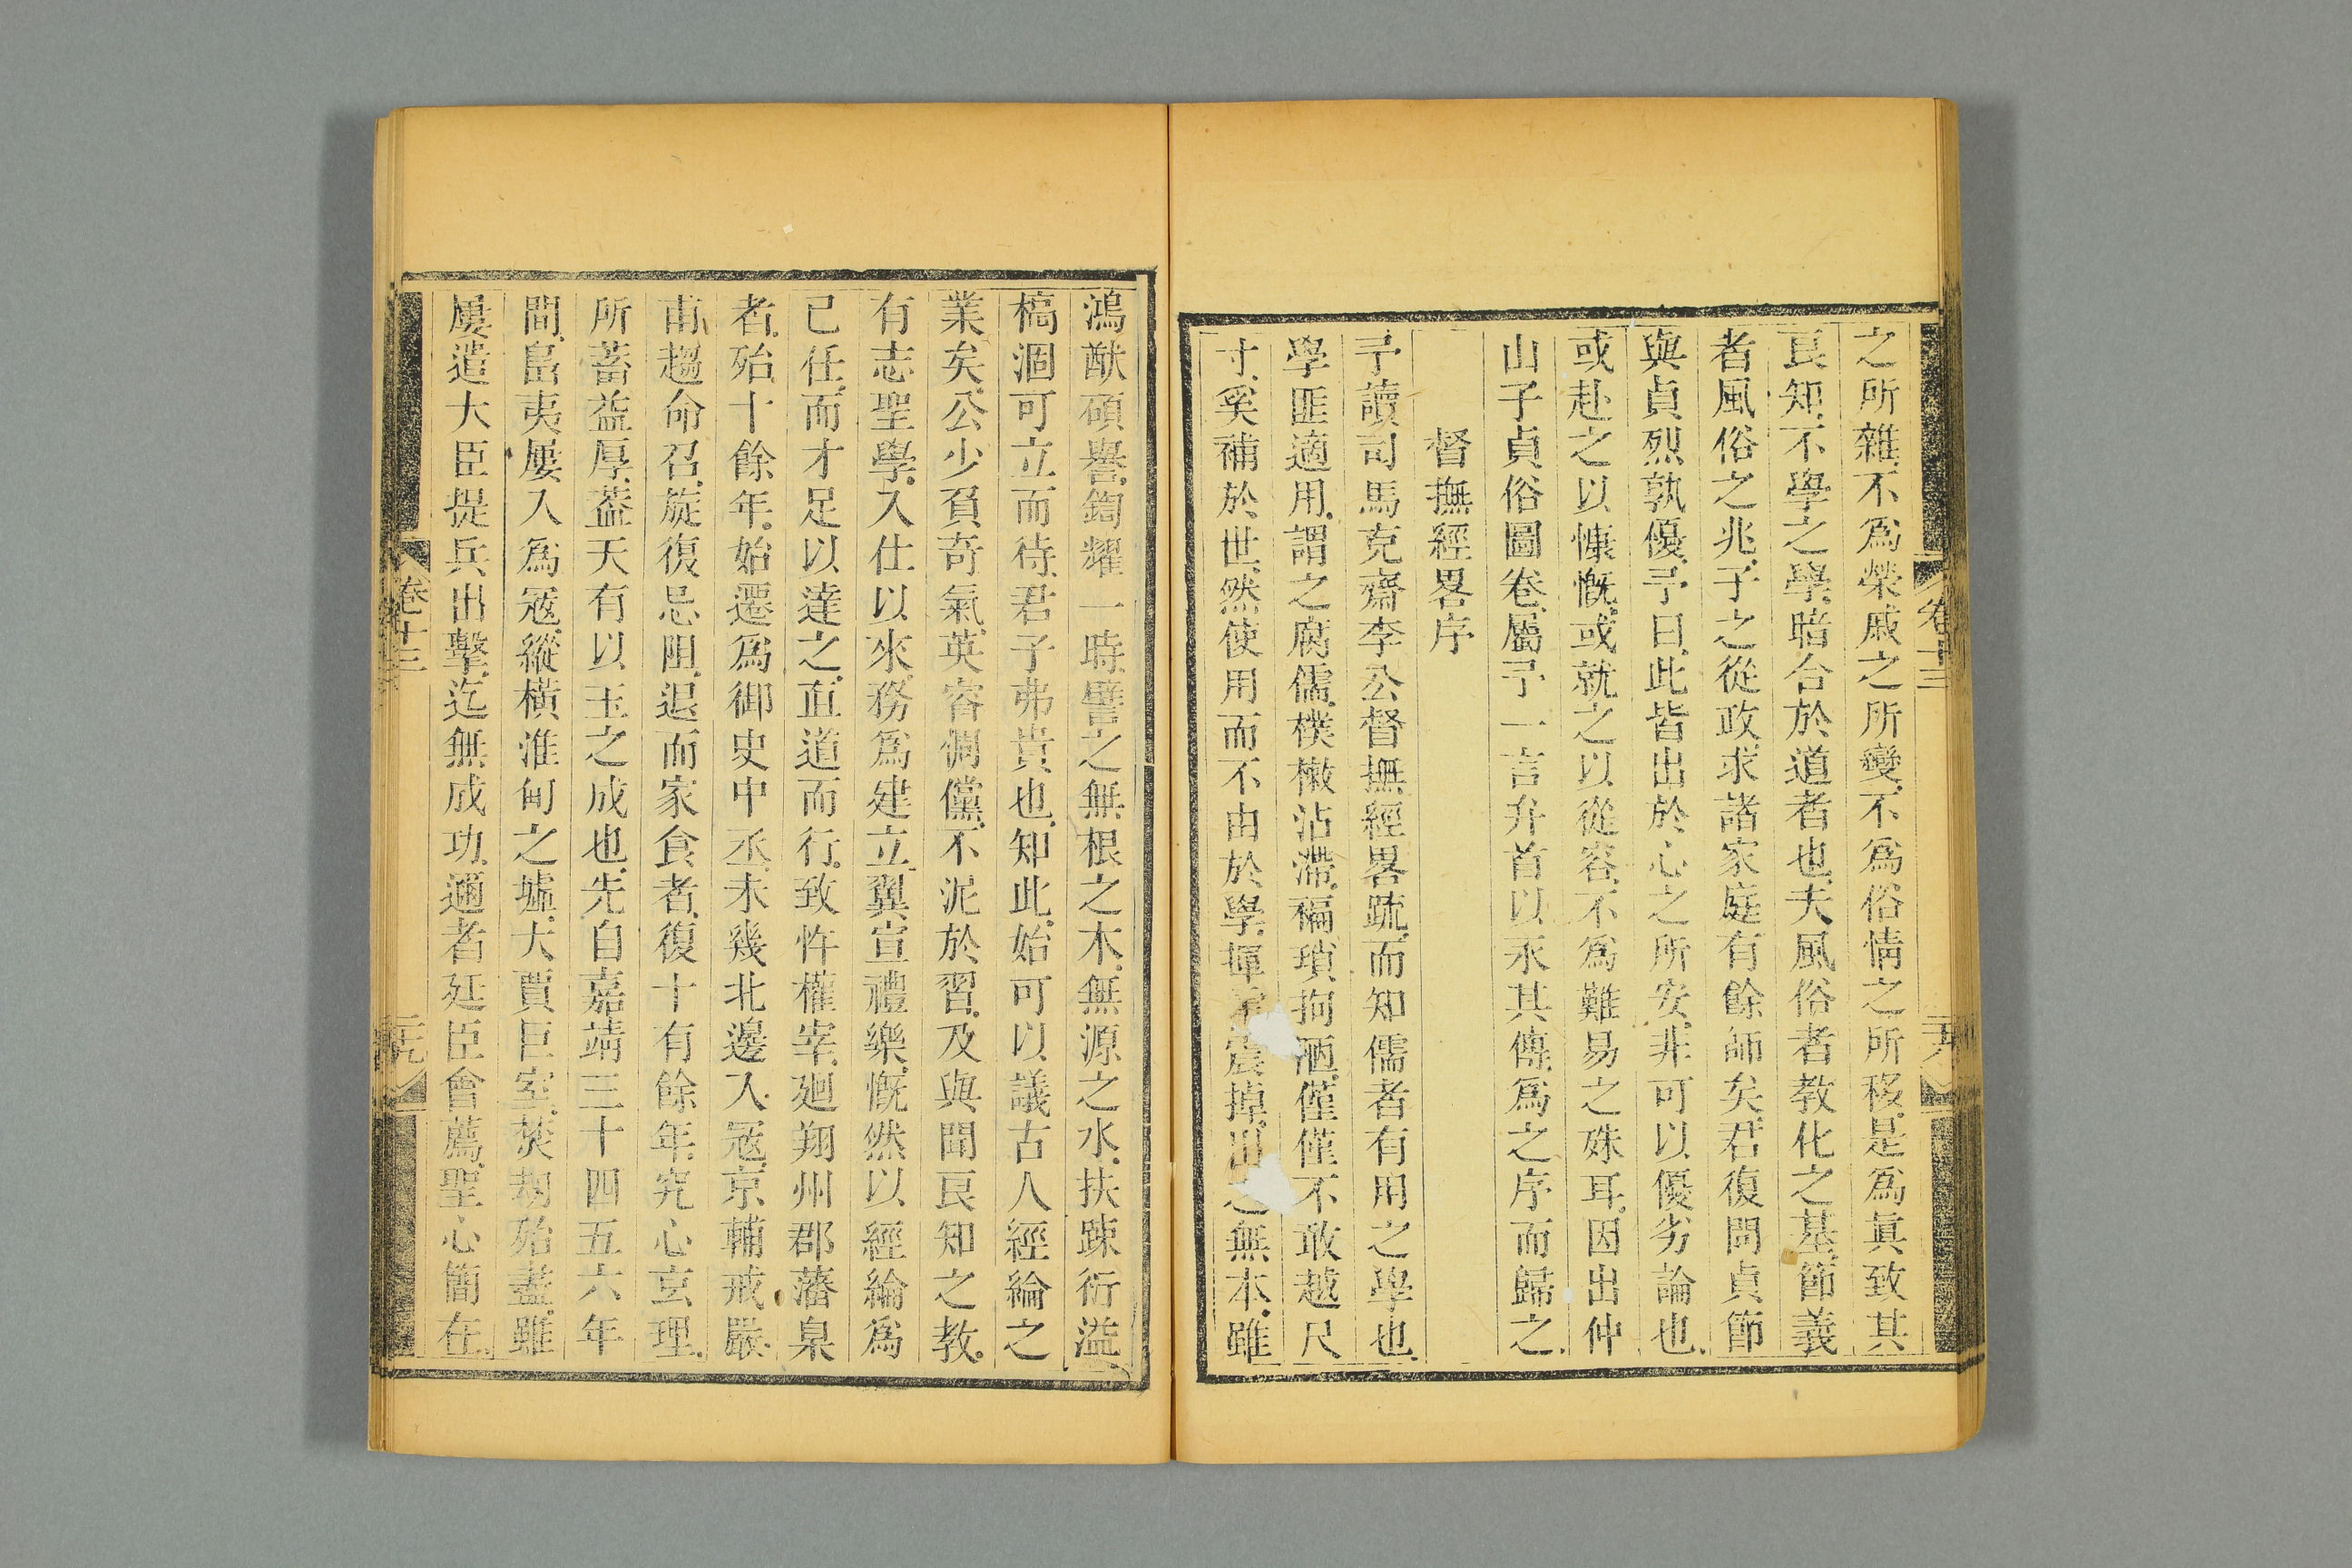 之所雜不爲榮戚之所變不爲俗情之所移是爲眞致其
良知不學之學暗合於道者也夫風俗者教化之基節義
者風俗之兆子之從政求諸家庭有餘師矣君復問貞節
與貞烈孰優予曰此皆出於心之所安非可以優劣論也
或赴之以慷慨或就之以從容不爲難易之殊耳因出仲
山子貞俗圖卷屬予一言弁首以永其傳爲之序而歸之
督撫經畧序
予讀司馬克齋李公督撫經畧疏而知儒者有用之學也
學匪適用謂之腐儒樸樕沾滯褊瑣拘陋僅僅不敢越尺
寸奚補於世然使用而不由於學揮震掉出無本雖
鴻猷碩譽鍧耀一時譬之無根之木無源之水扶踈衍溢
槁涸可立而待君子弗貴也知此始可以議古人經綸之
業矣公少負奇氣英睿倜儻不泥於習及與聞良知之教
有志聖學入仕以來務爲建立翼宣禮樂慨然以經綸爲
已任而才足以達之直道而行致忤權宰廻翔州郡藩臬
者殆十餘年始遷爲御史中丞未幾北邊入冦京輔戒嚴
甫趨命召旋復忌阻退而家食者復十有餘年究心玄理
所蓄益厚葢天有以玉之成也先自嘉靖三十四五六年
間島夷屢入爲冦縱橫淮甸之墟大賈巨室焚刼殆盡雖
屢遣大臣提兵出擊迄無成功邇者廷臣會薦聖心簡在
卷十三
卷十三